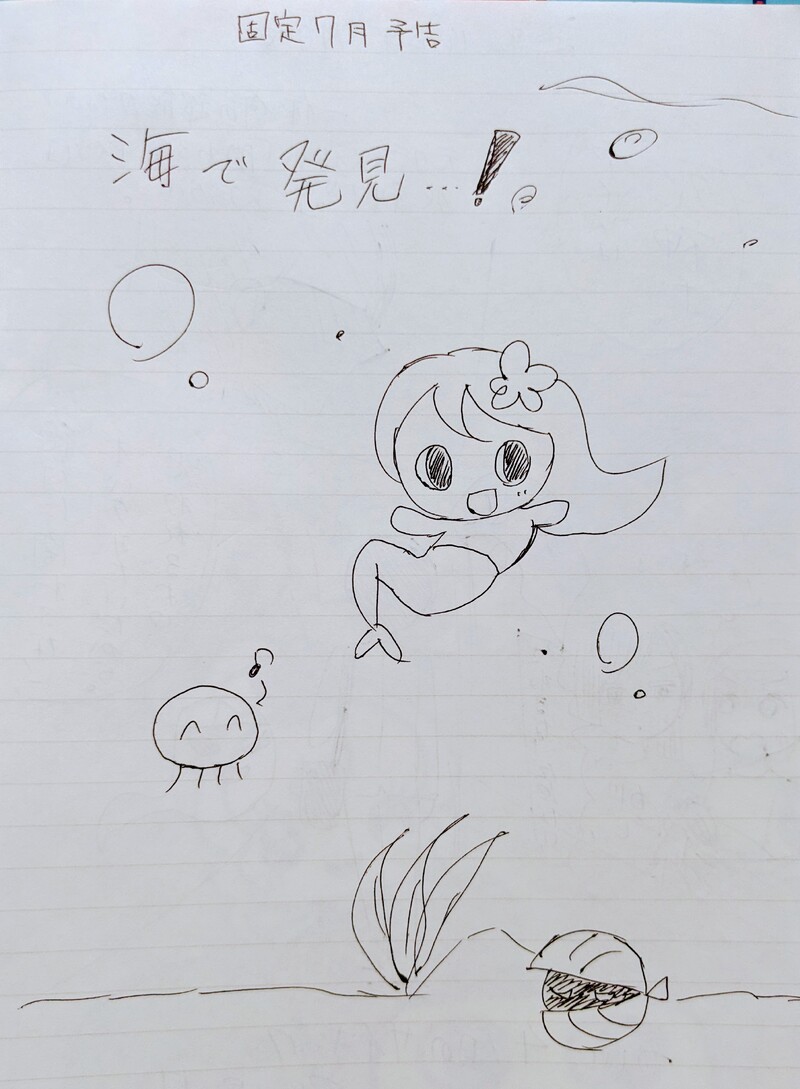 固定7月予告
海で発見…!